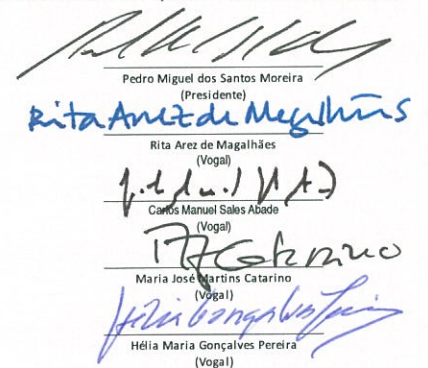 Pedro Miguel dos Santos Moreira
(Presidente)
Rita Arez de Magalhães
Rita Arez de Magalhães
(Vogal)
Carlos Manuel Sales Abade
(Vogal)
Catarino
Maria José Martins Catarino
(Vogal)
Hélia Gonçalves Pereira
Hélia Maria Gonçalves Pereira
(Vogal)